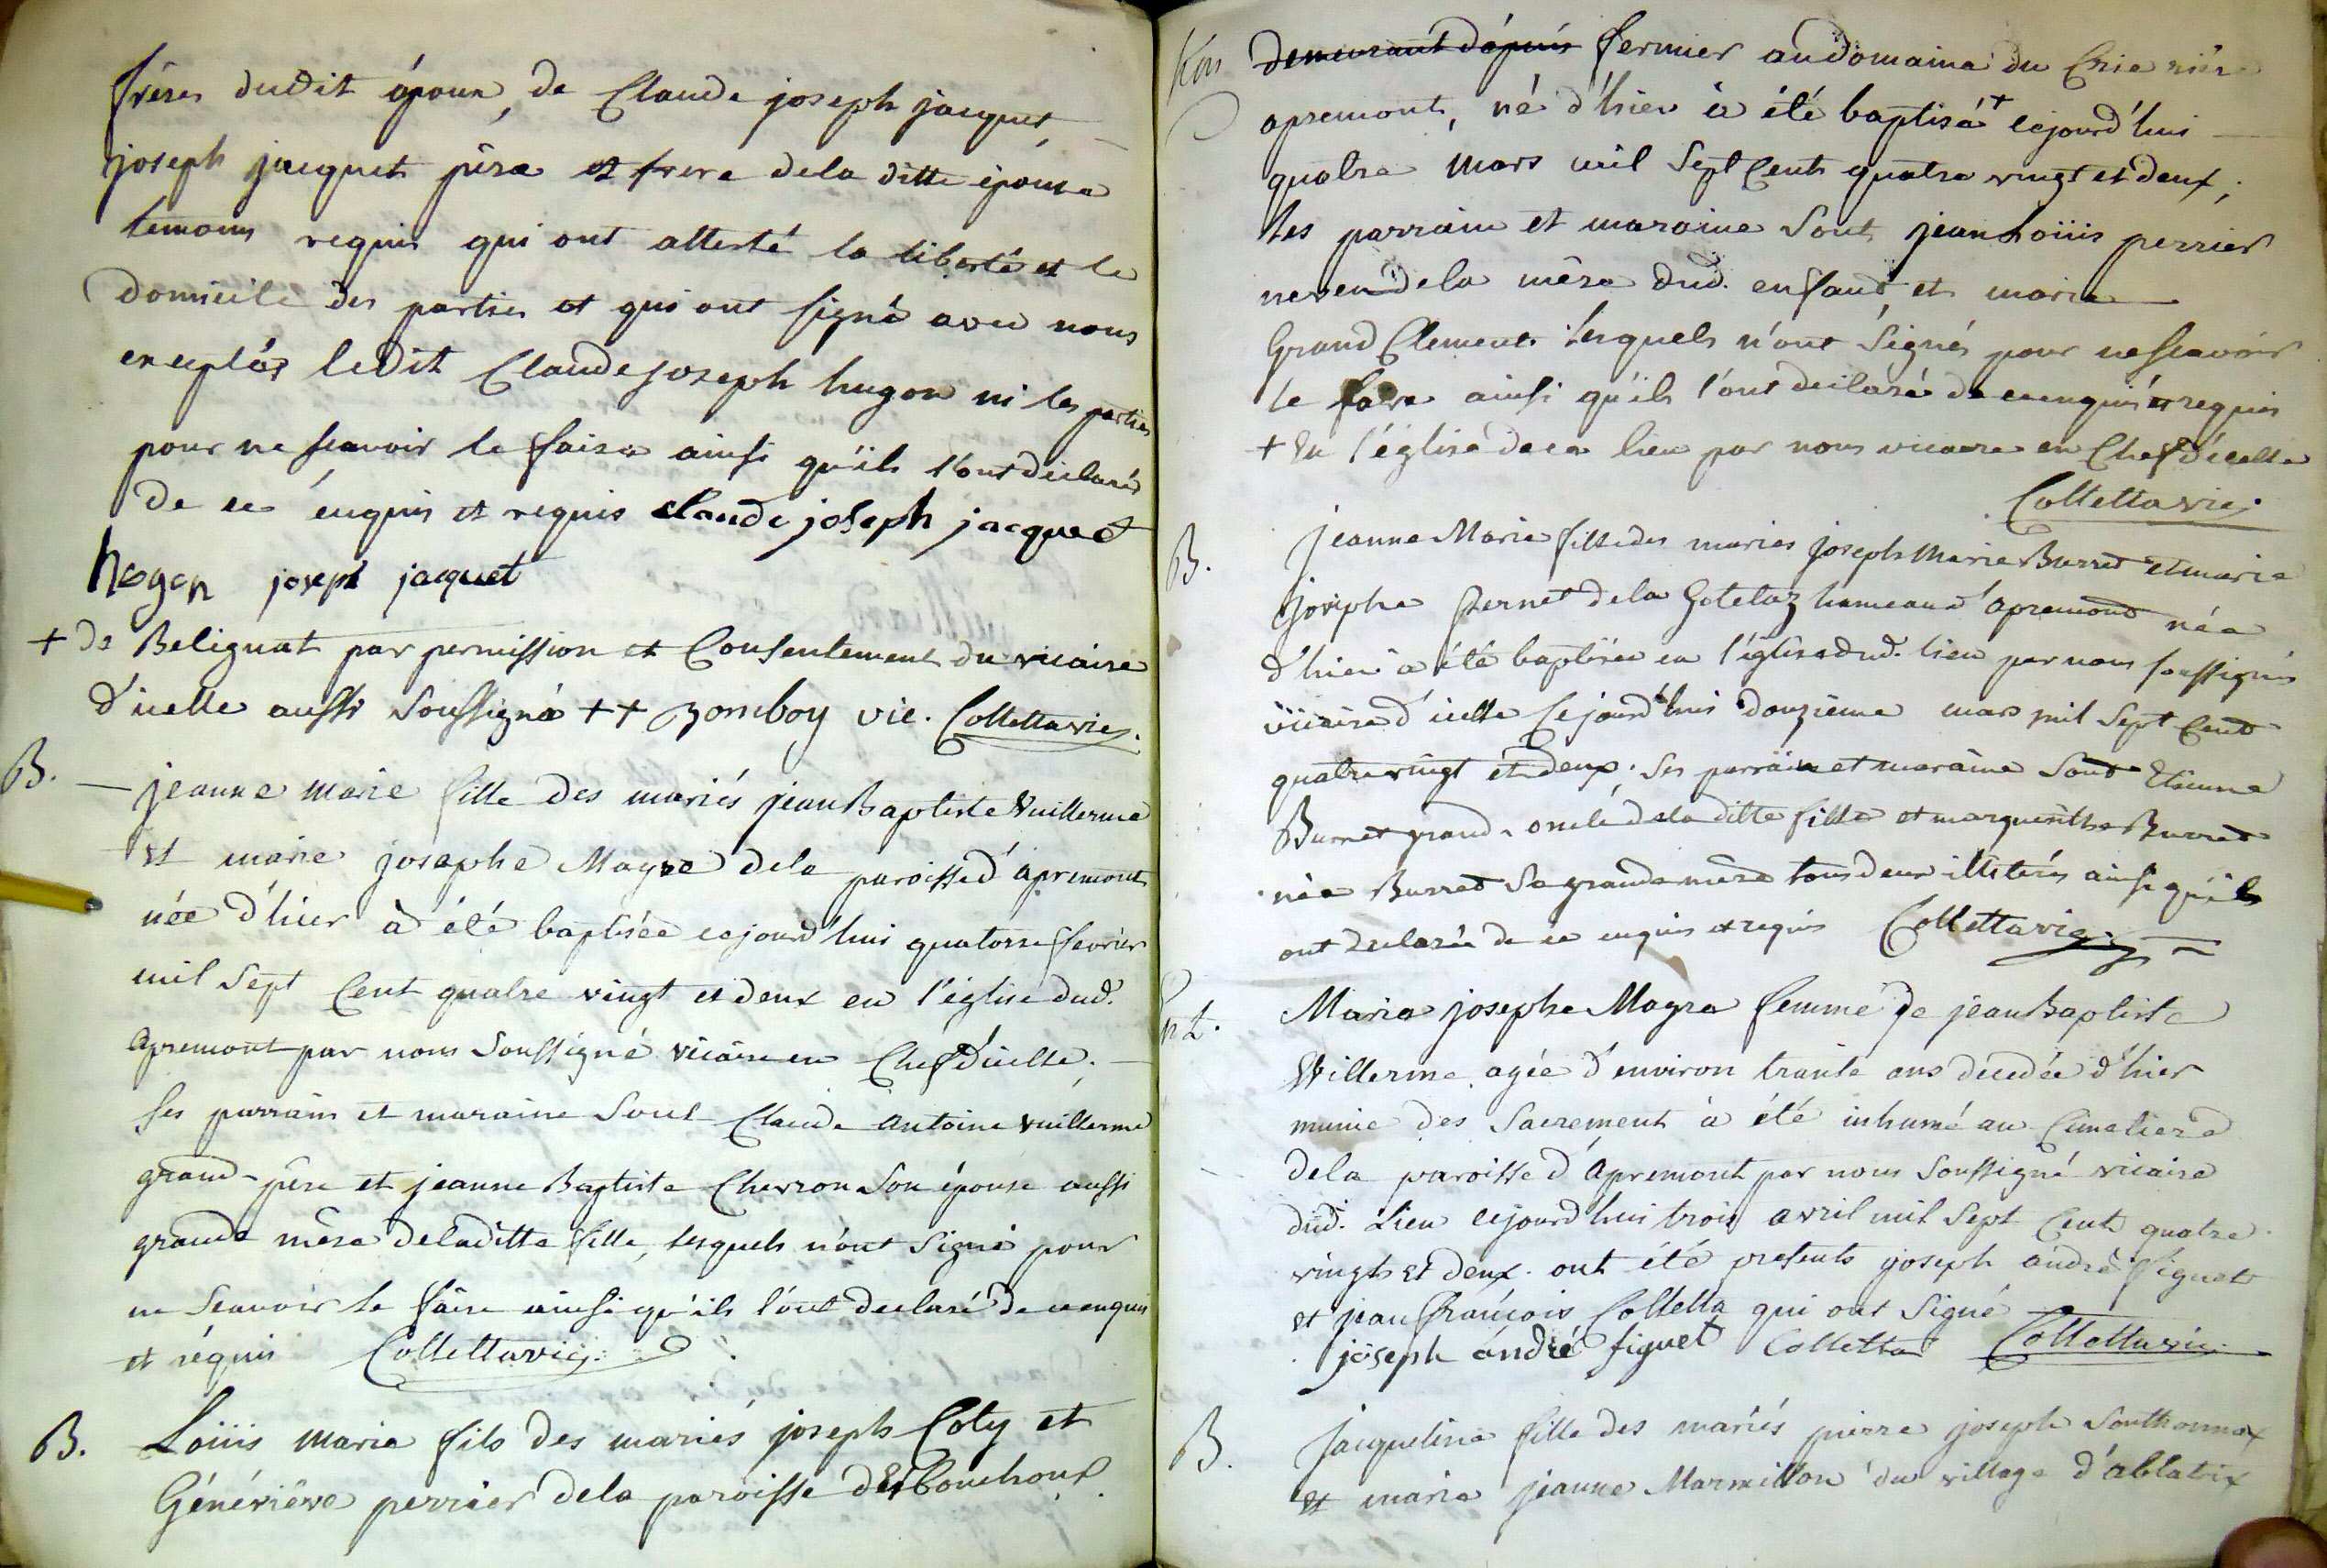 frères dudit époux, de Claude joseph jacquet,
joseph jacquet père et frere dela ditte épouse
temoins requis qui ont attesté la liberté et le
domicile des parties et qui ont signé avec nous
exceptés ledit Claude joseph hugon ni les parties
pour ne scavoir le faire ainsi qu'ils l'ont declaré
de ce enquis et requis claude joseph jacquet
hugon joseph jacquet
+ de Belignat par permission et Consentement du vicaire
d'icelle aussi soussigné ++ vic. Collettavic.
B. — jeanne marie fille des mariés jean Baptiste Vuillerme
et marie josephe Mayre dela paroisse d'apremont
née d'hier à été baptisée cejourd'hui quatorse fevrier
mil sept Cent quatre vingt et deux en l'église dud.
apremont par nous soussigné vicaire en Chef d'icelle. —
ses parrain et maraine sont Claude antoine vuillerme
grand-père et jeanne Baptiste Chevron son épouse aussi
grande mère deladitte fille, lesquels n'ont signé pour
ne scavoir le faire ainsi qu'ils l'ont declaré de ce enquis
et réquis Collettavic.
B. Loüis marie fils des mariés joseph Coly et
Généviève perrier dela paroisse des Bouchoux
demeurant dépuis fermier au domaine du Crie rière
apremont, né d'hier à été baptisé + cejourd'hui —
quatre mars mil sept Cent quatre vingt et deux;
les parrain et maraine sont jean Loüis perrier
neveu dela mère dud. enfant et marie
Grand Clement lesquels n'ont signés pour ne scavoir
le faire ainsi qu'ils l'ont declaré de ce enquis et requis
+ En l'église de ce lieu par nous vicaire en Chef d'icelle
Collettavic.
B. jeanne Marie fille des mariés joseph Marie Burret et marie
josephe Pernet dela Gotetaz hameau d'apremont née
d'hier a été baptisée en l'église dud. lieu par nous soussigné
vicaire d'icelle Cejourd'hui douzieme mars mil sept Cent
quatre vingt et deux. ses parrain et maraine sont Etienne
Burret grand-oncle dela ditte fille et marguerithe Burret
née Burret sa grande mère tous deux illiterés ainsi qu'ils
ont declaré de ce enquis et requis Collettavic.
Marie josephe Mayre femme de jean Baptiste
Willerme agée d'environ trante ans decedée d'hier
munie des Sacrement à été inhumé au Cimetiere
dela paroisse d'apremont par nous soussigné vicaire
dud. Lieu cejourd'hui trois avril mil sept Cent quatre
vingts et deux. ont été presents joseph andré figuet
et jean françois Colletta qui ont signé
joseph andré figuet Colletta Collettavic.
B. jacqueline fille des mariés pierre joseph Sonthonnax
et marie jeanne Marmillon du village d'ablatrix